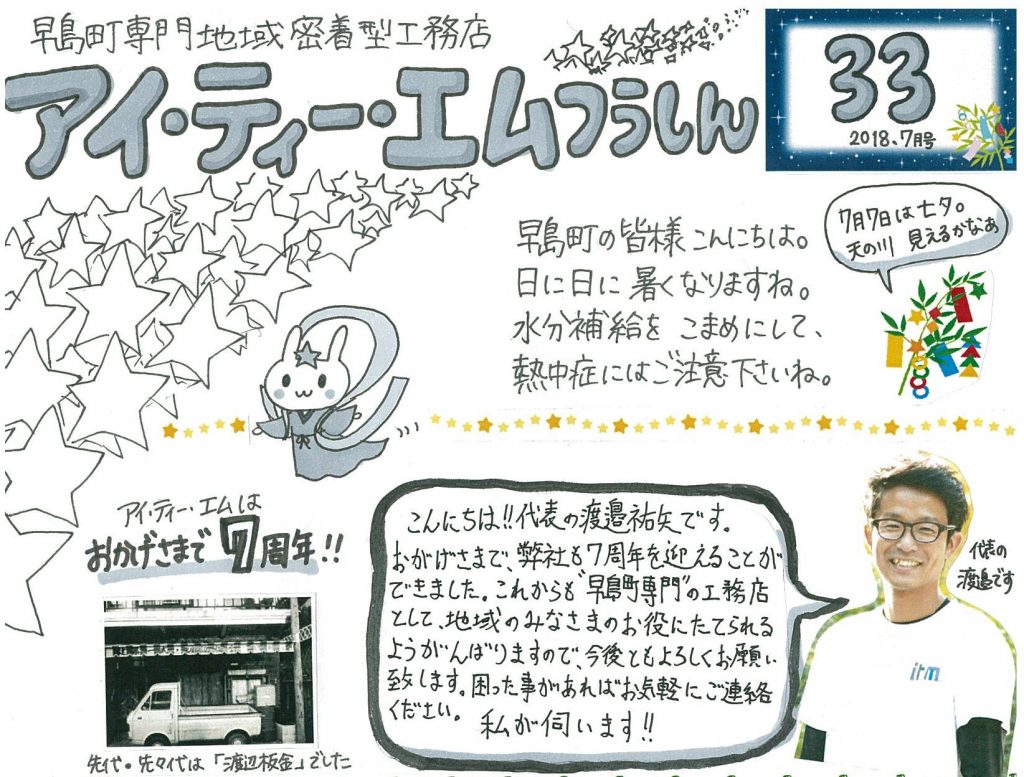 早島町専門地域密着型工務店
アイ・ティー・エムつうしん
33
2018、7月号
7月7日は七夕。
天の川 見えるかなあ
早島町の皆様こんにちは。
日に日に暑くなりますね。
水分補給をこまめにして、
熱中症にはご注意下さいね。
アイ・ティー・エムは
おかげさまで7周年!!
先代・先々代は「渡辺板金」でした
こんにちは!!代表の渡邉祐矢です。
おかげさまで、弊社も7周年を迎えることが
できました。これからも"早島町専門"の工務店
として、地域のみなさまのお役にたてられる
ようがんばりますので、今後ともよろしくお願い
致します。困った事があればお気軽にご連絡
ください。 私が伺います!!
代表の
渡邉です
itm